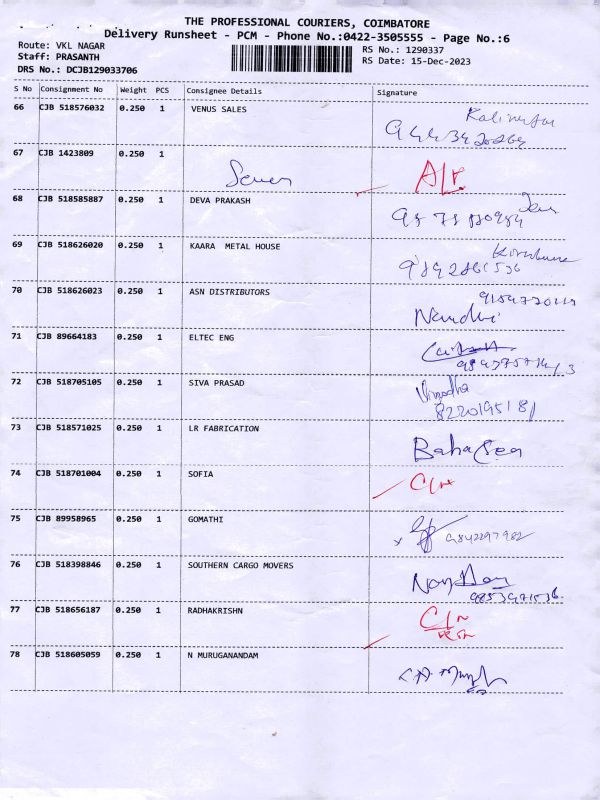 THE PROFESSIONAL COURIERS, COIMBATORE
Delivery Runsheet - PCM - Phone No.:0422-3505555 - Page No.:6
Route: VKL NAGAR
RS No.: 1290337
Staff: PRASANTH
RS Date: 15-Dec-2023
DRS No.: DCJB129033706
S No Consignment No Weight PCS Consignee Details Signature
66 CJB 518576032 0.250 1 VENUS SALES
67 CJB 1423809 0.250 1
68 CJB 518585887 0.250 1 DEVA PRAKASH
69 CJB 518626020 0.250 1 KAARA METAL HOUSE
70 CJB 518626023 0.250 1 ASN DISTRIBUTORS
Nandhi
71 CJB 89664183 0.250 1 ELTEC ENG
72 CJB 518705105 0.250 1 SIVA PRASAD
8220195181
73 CJB 518571025 0.250 1 LR FABRICATION
74 CJB 518701004 0.250 1 SOFIA
75 CJB 89958965 0.250 1 GOMATHI
9842297982
76 CJB 518398846 0.250 1 SOUTHERN CARGO MOVERS
77 CJB 518656187 0.250 1 RADHAKRISHN
78 CJB 518605059 0.250 1 N MURUGANANDAM